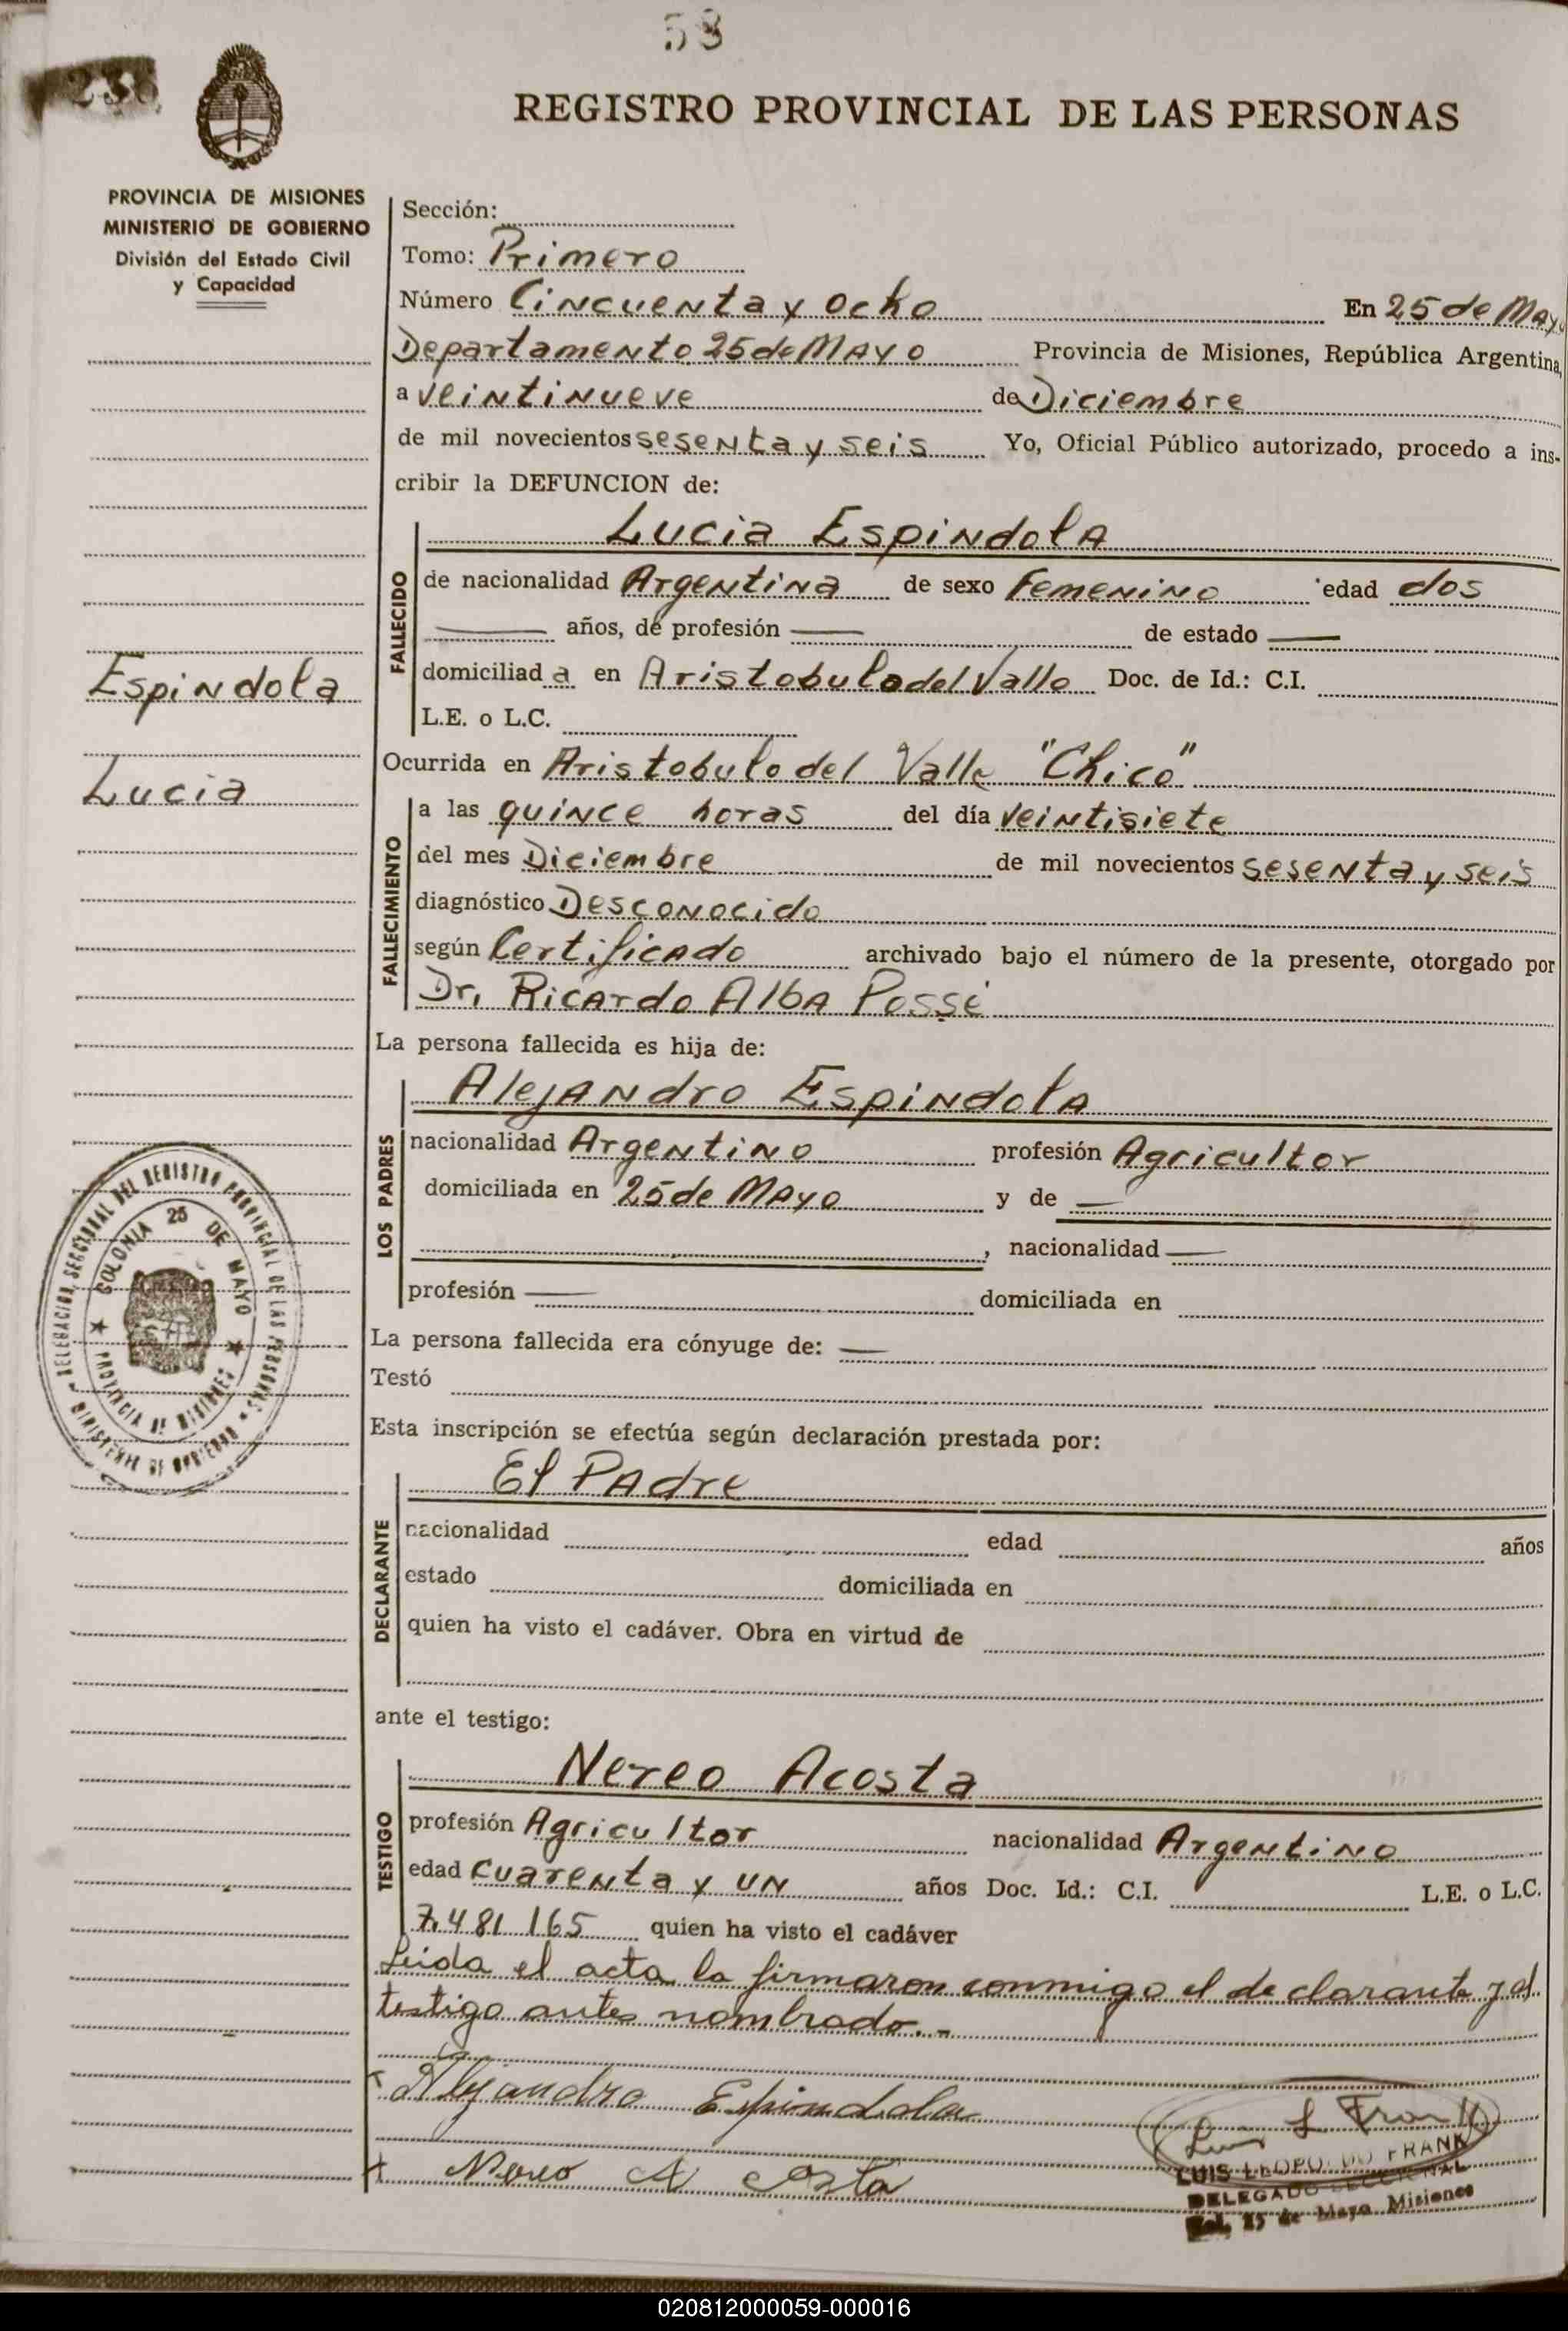 58
REGISTRO PROVINCIAL DE LAS PERSONAS
PROVINCIA DE MISIONES
MINISTERIO DE GOBIERNO
División del Estado Civil
y Capacidad
Sección:
Tomo: Primero
Número Cincuenta y ocho En 25 de Mayo
Departamento 25 de Mayo Provincia de Misiones, República Argentina,
a veintinueve de Diciembre
de mil novecientos sesenta y seis Yo, Oficial Público autorizado, procedo a ins-
cribir la DEFUNCION de:
Lucia Espindola
FALLECIDO
de nacionalidad Argentina de sexo Femenino edad dos
años, de profesión — de estado —
domiciliad a en Aristobulo del Valle Doc. de Id.: C.I.
L.E. o L.C.
Espindola
Lucia
Ocurrida en Aristobulo del Valle "Chico"
FALLECIMIENTO
a las quince horas del día veintisiete
del mes Diciembre de mil novecientos sesenta y seis
diagnóstico Desconocido
según Certificado archivado bajo el número de la presente, otorgado por
Dr. Ricardo Alba Possé
La persona fallecida es hija de:
Alejandro Espindola
LOS PADRES
nacionalidad Argentino profesión Agricultor
domiciliada en 25 de Mayo y de —
, nacionalidad —
profesión — domiciliada en
DELEGACION SECCIONAL DEL REGISTRO PROVINCIAL DE LAS PERSONAS
MINISTERIO DE GOBIERNO
COLONIA 25 DE MAYO
PROVINCIA DE MISIONES
La persona fallecida era cónyuge de: —
Testó
Esta inscripción se efectúa según declaración prestada por:
El Padre
DECLARANTE
nacionalidad edad años
estado domiciliada en
quien ha visto el cadáver. Obra en virtud de
ante el testigo:
Nereo Acosta
TESTIGO
profesión Agricultor nacionalidad Argentino
edad cuarenta y un años Doc. Id.: C.I. L.E. o L.C.
7.481.165 quien ha visto el cadáver
Leida el acta la firmaron conmigo el declarante y el
testigo antes nombrado.-
Alejandro Espindola
Nereo A costa
LUIS LEOPOLDO FRANK
DELEGADO SECCIONAL
Col. 25 de Mayo Misiones
020812000059-000016